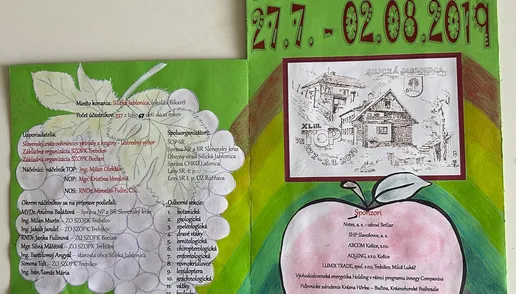 27.7. - 02.08.2019
SILICKÁ JABLONICA
XLIII.
Miesto konania: Silická Jablonica, lokalita Bikarét
Počet účastníkov: 337 z toho 67 detí do 15 rokov
Usporiadatelia:
Slovenský zväz ochrancov prírody a krajiny - Ústredný výbor
Základná organizácia SZOPK Trebišov
Základná organizácia SZOPK Bočian
Náčelníci: náčelník TOP: Ing. Milan Olekšák
NOP: Mgr. Kristína
NOS: RNDr. Miroslav Fulín, CSc.
Okrem náčelníkov sa na príprave podieľali:
MVDr. Andrea Balážová - Správa NP a BR Slovenský kras
Ing. Milan Murín - ZO SZOPK Trebišov
Ing. Jakub Jandel - ZO SZOPK Trebišov
RNDr. Janka Fulínová - ZO SZOPK Trebišov
Mgr. Silvia Mátéová - ZO SZOPK Trebišov
Ing. Bartolomej Angyal - starosta obce Silická Jablonica
Simona Tolt - ZO SZOPK Trebišov
Ing. Iván Tamás Mária
Spoluorganizátori:
ŠOP SR
Správa NP a BR Slovenský kras
Obecný úrad Silická Jablonica
Správa CHKO Latorica
Lesy SR, š. p.
Lesy SR š. p. OZ Rožňava
Odborné sekcie:
1. botanická
2. geologická
3. speleologická
4. dravce sovy
5. ornitologická
6. chiropterologická
7. entomologická
9. lepidoptera
10. arachnologická
Sponzori
Notes, a. s. - závod Betliar
SHP Slavošovce, a. s.
ARCOM Košice, s.r.o.
AQUING, s.r.o. Košice
LUMIX TRADE, spol. s r.o., Trebišov, Miloš Lukáč
Východoslovenská energetika Holding v rámci programu Innogy Companius
Poľovnícke združenie Krásna Hôrka - Bučina, Krásnohorské Podhradie